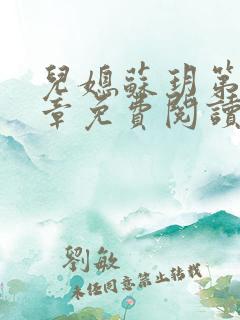 兒媳蘇玥第
章免費閱讀
劉敏
未经同意禁止转载